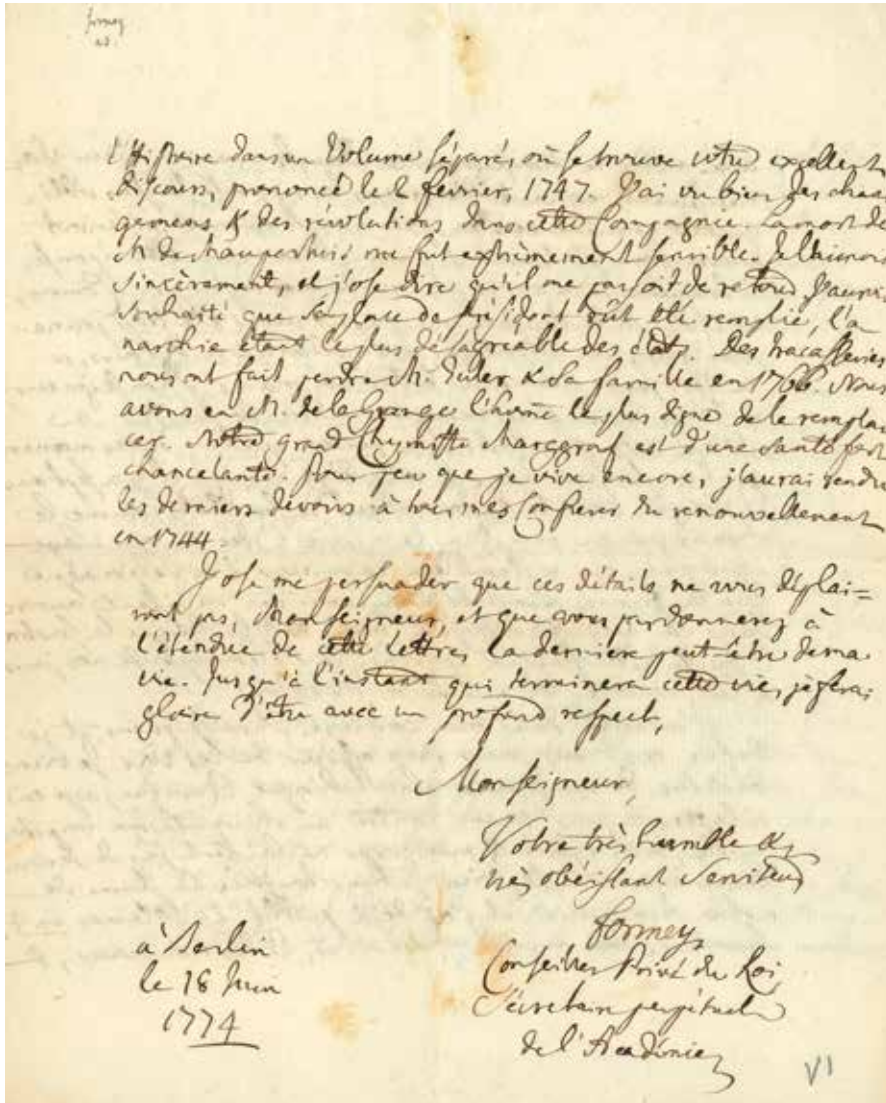 formey
l'Histoire dans un Volume séparé, où se trouve votre excellent
discours, prononcé le 2 février, 1747. J'ai vu bien des chan
gemens & des révolutions dans cette Compagnie. La mort de
M. de Maupertuis me fut extrèmement sensible. Je l'aimois
sincèrement, et j'ose dire qu'il me païoit de retour. J'aurois
souhaité que sa place de Président eût été remplie, l'a
narchie étant le plus désagréable des états. Des tracasseries
nous ont fait perdre M. Euler & sa famille en 1766. Nous
avons en M. de la Grange l'home le plus digne de le rempla
cer. Notre grand Chymiste Marggraf est d'une santé fort
chancelante. Pour peu que je vive encore, j'aurai rendu
les derniers devoirs à tous mes Confreres du renouvellement
en 1744.
J'ose me persuader que ces détails ne vous déplai=
ront pas, Monseigneur, et que vous pardonnerez à
l'étendue de cette Lettre, la derniere peut-être de ma
vie. Jusqu'à l'instant qui terminera cette vie, je ferai
gloire d'être avec un profond respect,
Monseigneur,
Votre très humble &
très obéissant Serviteur
formey,
Conseiller Privé du Roi,
Sécretaire perpétuel
de l'Académie
à Berlin
le 18 Juin
1774
VI